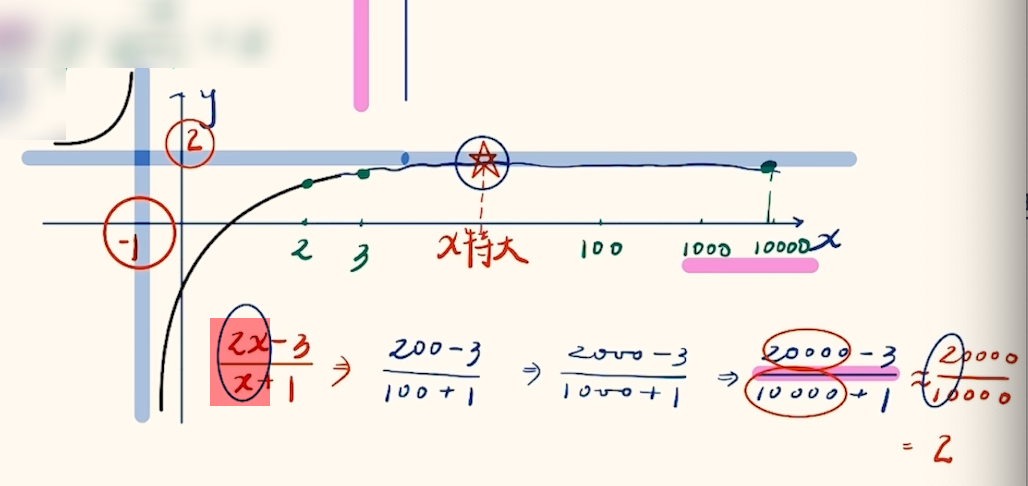 y
2
-1
2 3 x特大 100 1000 10000 x
(2x-3)/(x+1) ⇒ (200-3)/(100+1) ⇒ (2000-3)/(1000+1) ⇒ (20000-3)/(10000+1) ≈ 20000/10000
= 2